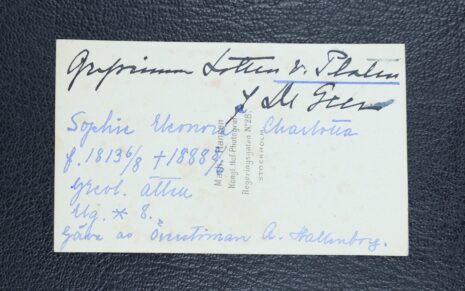 Grefvinnan Lotten v. Platen
f. De Geer
Sophie Eleonora Charlotta
f. 1813 6/8 + 1888
Grevl. ätten
Utg. * 8.
Gåva av Överstinnan A. Hallenborg.
Kongl. Hof-Photograf
Regeringsgatan Nº 28
STOCKHOLM.